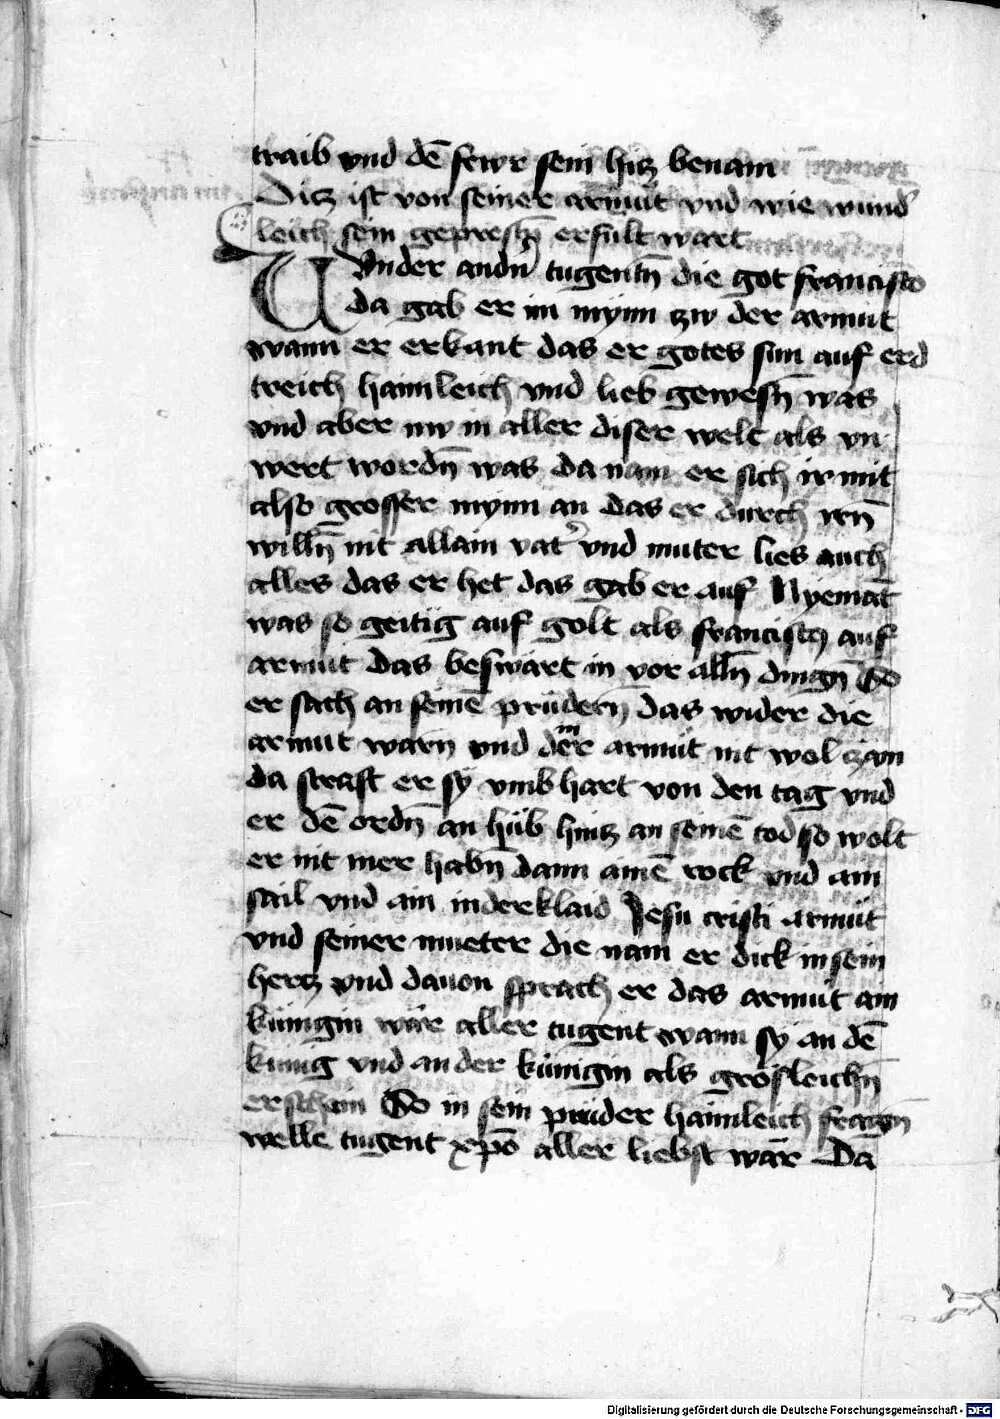 traib vnd dē fewr sein hicz benam
Ditz ist von seiner armut vnd wie wund̛
leich sein geprestn̄ erfult wart
Under andn̄ tugentn̄ die got francisco
da gab er im mynn zw der armut
wann er erkant das er gotes sun auf erd
treich haimleich vnd lieb gewesn̄ was
vnd aber nw in aller diser welt als vn
wert wordn̄ was da nam er sich ir mit
also grosser mynn an das er durch irn̄
willn̄ nit allain vat̛ vnd muter lies auch
alles das er het das gab er auf Nyemāt
was so geitig auf golt als franciscus auf
armut Das beswart in vor alln̄ dingn̄ So
er sach an seinē prüdern̄ das wider die
armut warn̄ vnd der in armut nit wol zam
da straft er sy vmb hart von den tag vnd
er dē ordn̄ an hüb hincz an seinē tod so wolt
er nit mer habn̄ dann ainē rock vnd ain
sail vnd ain inderklaid Jesu cristi armüt
vnd seiner mueter die nam er dick in sein
hertz vnd dauon sprach er das armut ain
künigin wär aller tugent wann sy an dē
kunig vnd an der künigin als grosleichn̄
erschain So in sein prüder haimleich fragn̄
welle tugent xpō aller liebst wär Da
Digitalisierung gefördert durch die Deutsche Forschungsgemeinschaft - DFG